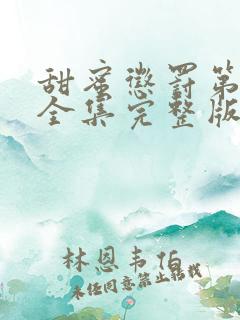 甜蜜懲罰第
全集完整版
林恩韦伯
未经同意禁止转载